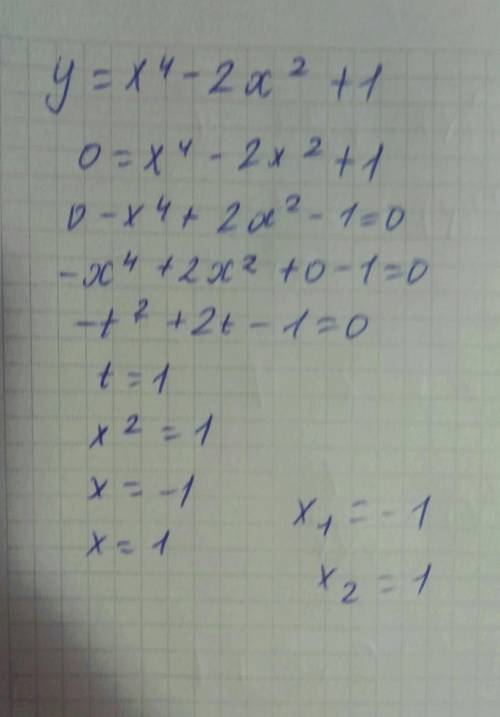 y = x⁴ - 2x² + 1
0 = x⁴ - 2x² + 1
0 - x⁴ + 2x² - 1 = 0
-x⁴ + 2x² + 0 - 1 = 0
-t² + 2t - 1 = 0
t = 1
x² = 1
x = -1
x = 1
x₁ = -1
x₂ = 1